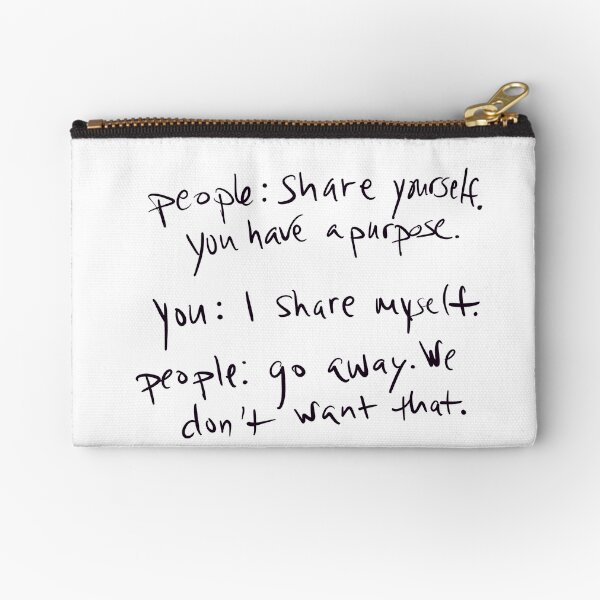 people: Share yourself.
you have a purpose.
you: I share myself.
people: go away. We
don't want that.